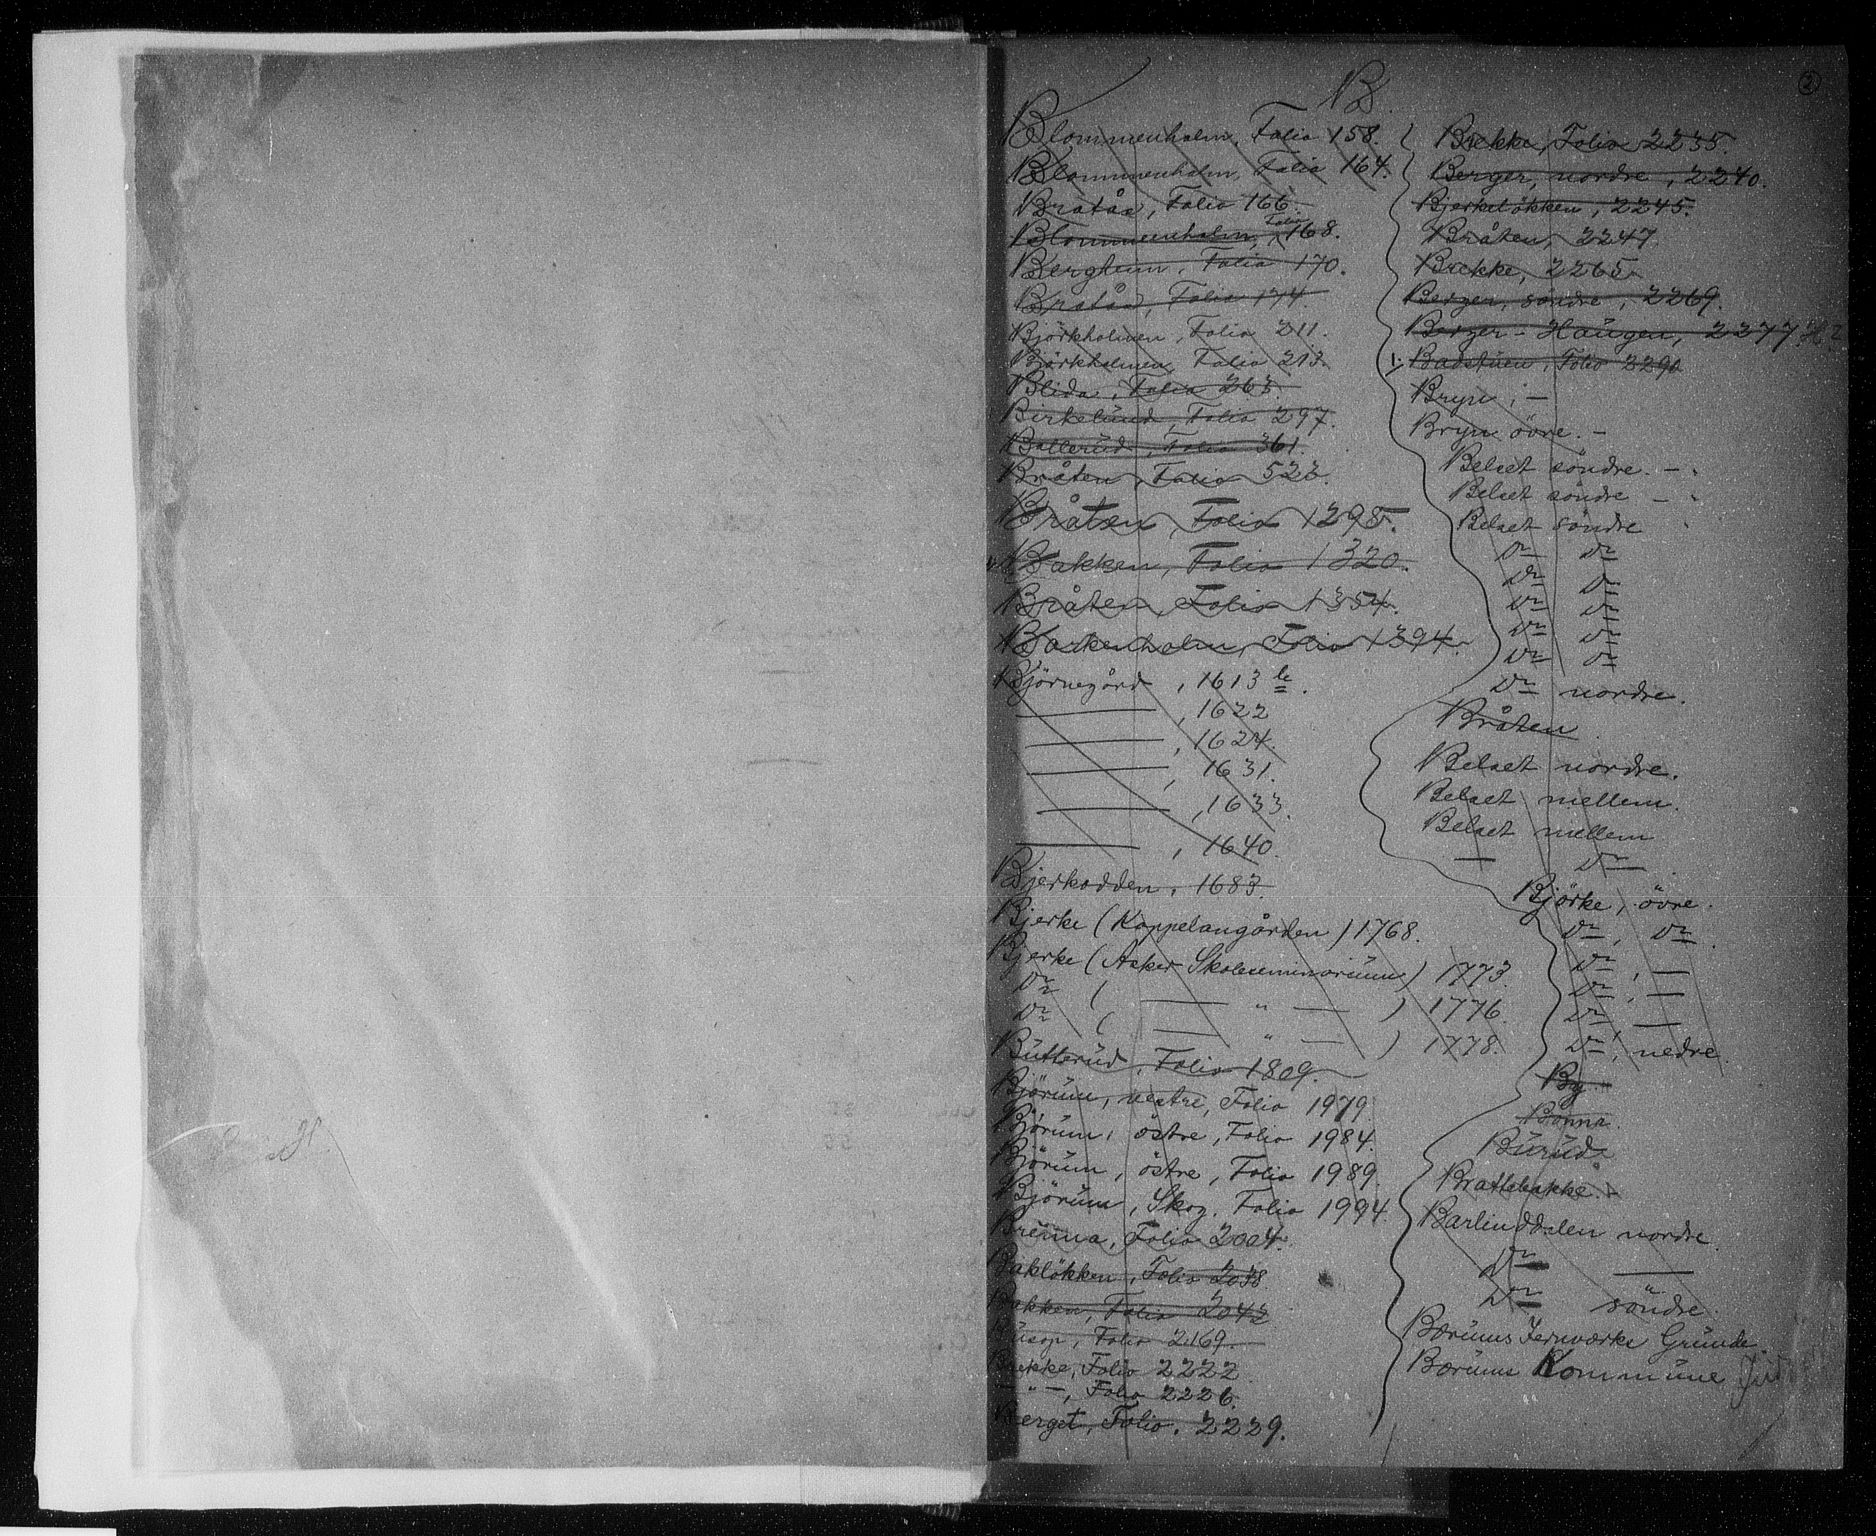 2
B.
Blommenholm, Folio 158.
Blommenholm, Folio 164.
Bratås, Folio 166.
Blommenholm, Folio 168.
Bergheim, Folio 170.
Bratås, Folio 174
Björkholmen, Folio 211.
Björkholmen, Folio 213.
Blida, Folio 265.
Birkelund, Folio 297.
Ballerud, Folio 361.
Bråten, Folio 522.
Bråten, Folio 1295.
Bakken, Folio 1320.
Bråten, Folio 1354.
Bjarkenholm, Folio 1394.
Björnegård, 1613 b.
——, 1622
——, 1624.
——, 1631.
——, 1633.
——, 1640.
Bjerkodden, 1683
Bjerke (Kappelangården) 1768.
Bjerke (Asker Skoleseminarium) 1773.
Do ( — " — ) 1776.
Do ( — " — ) 1778.
Butterud, Folio 1809.
Bjørum, vestre, Folio 1979
Bjørum, östre, Folio 1984.
Bjørum, östre, Folio 1989.
Bjørum, Skog. Folio 1994.
Brenna, Folio 2004.
Bakløkken, Folio 2038.
Bakken, Folio 2042
Folio 2169.
Brekke, Folio 2222
— " —, Folio 2226.
Berget, Folio. 2229.
Brekke, Folio 2235.
Berger, nordre, 2240.
Bjerkeløkken, 2245.
Bråten, 2247
Brekke, 2265
Berger, söndre, 2269.
Berger - Haugen, 2277
Badstuen, Folio 2290
Bryn, —
Bryn övre. —
Belset söndre. —
Belset söndre —
Belset söndre
Do Do
Do Do
Do Do
Do Do
Do Do
Do nordre.
Bråten
Belset nordre.
Belset mellem.
Belset mellem
— Do
Bjørke, övre.
Do, Do.
Do, —
Do, —
Do, —
Do, nedre.
By
Bonna.
Burud.
Brattebakke. -
Barlinddalen nordre.
Do ——
Do söndre.
Bærums Jernværks Grunde
Bærums Kommune